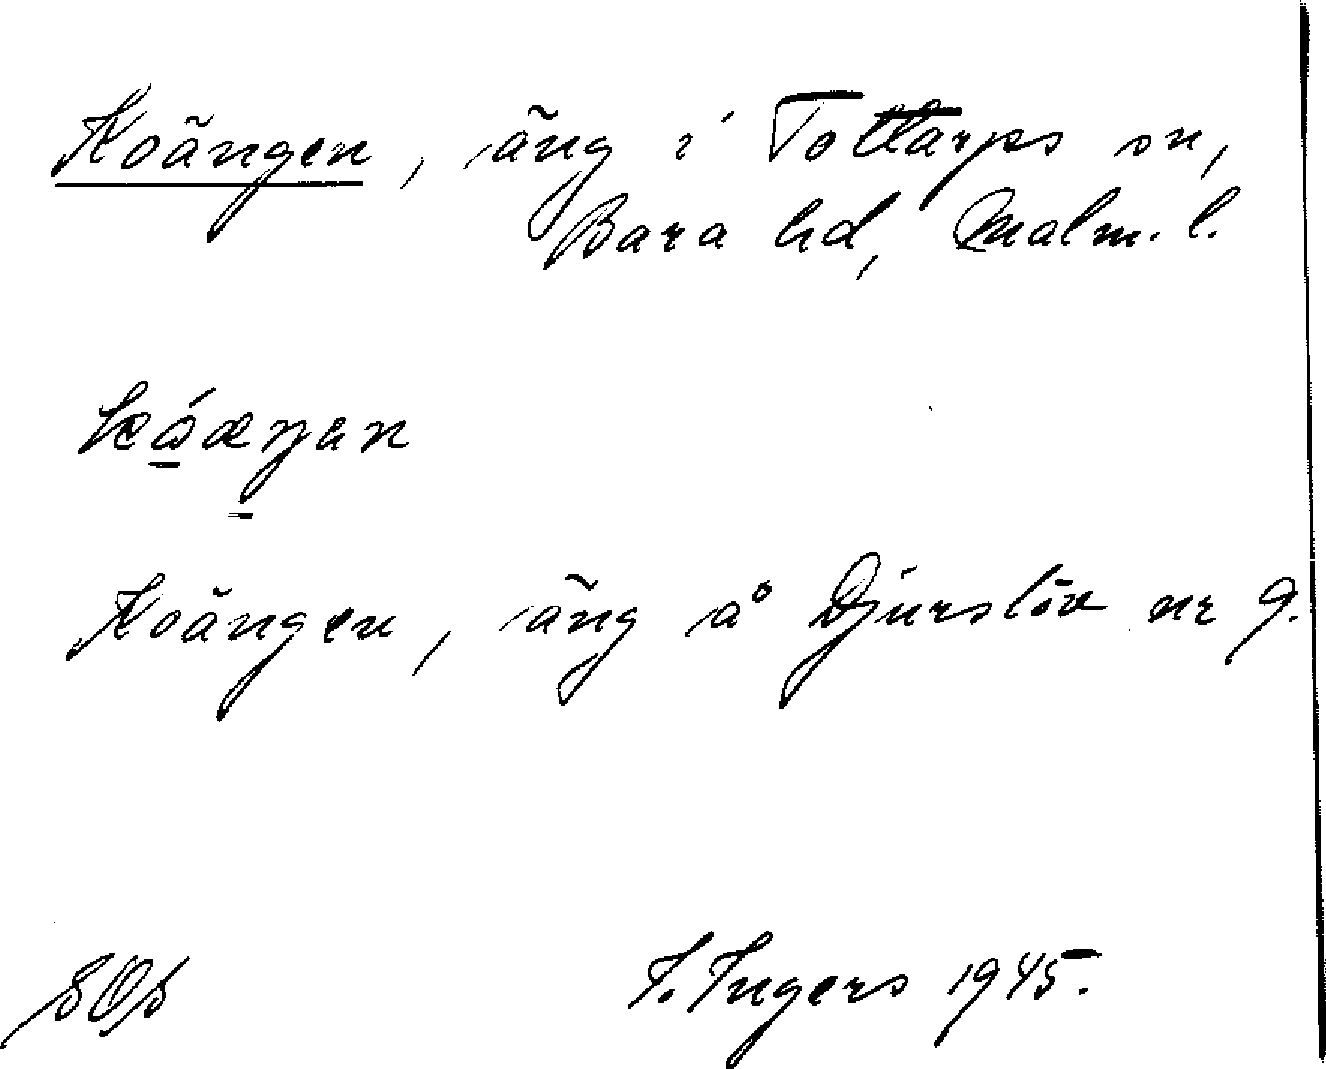 Koängen, äng i Tottarps sn,
Bara hd, Malm. l.
kǿæŋan
Koängen, äng å Djurslöv nr 9.
SOS I. Ingers 1945.